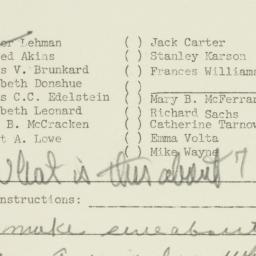 or Lehman ( ) Jack Carter
ed Akins ( ) Stanley Karson
s V. Brunkard ( ) Frances Williams
beth Donshue ( )
s C.C. Edelstein ( ) Mary B. McFerran
beth Leonard ( ) Richard Sachs
B. McCracken ( ) Catherine Tarnow
t A. Lowe ( ) Emma Volta
( ) Mike Wayne
What is this about ?
nstructions:
make